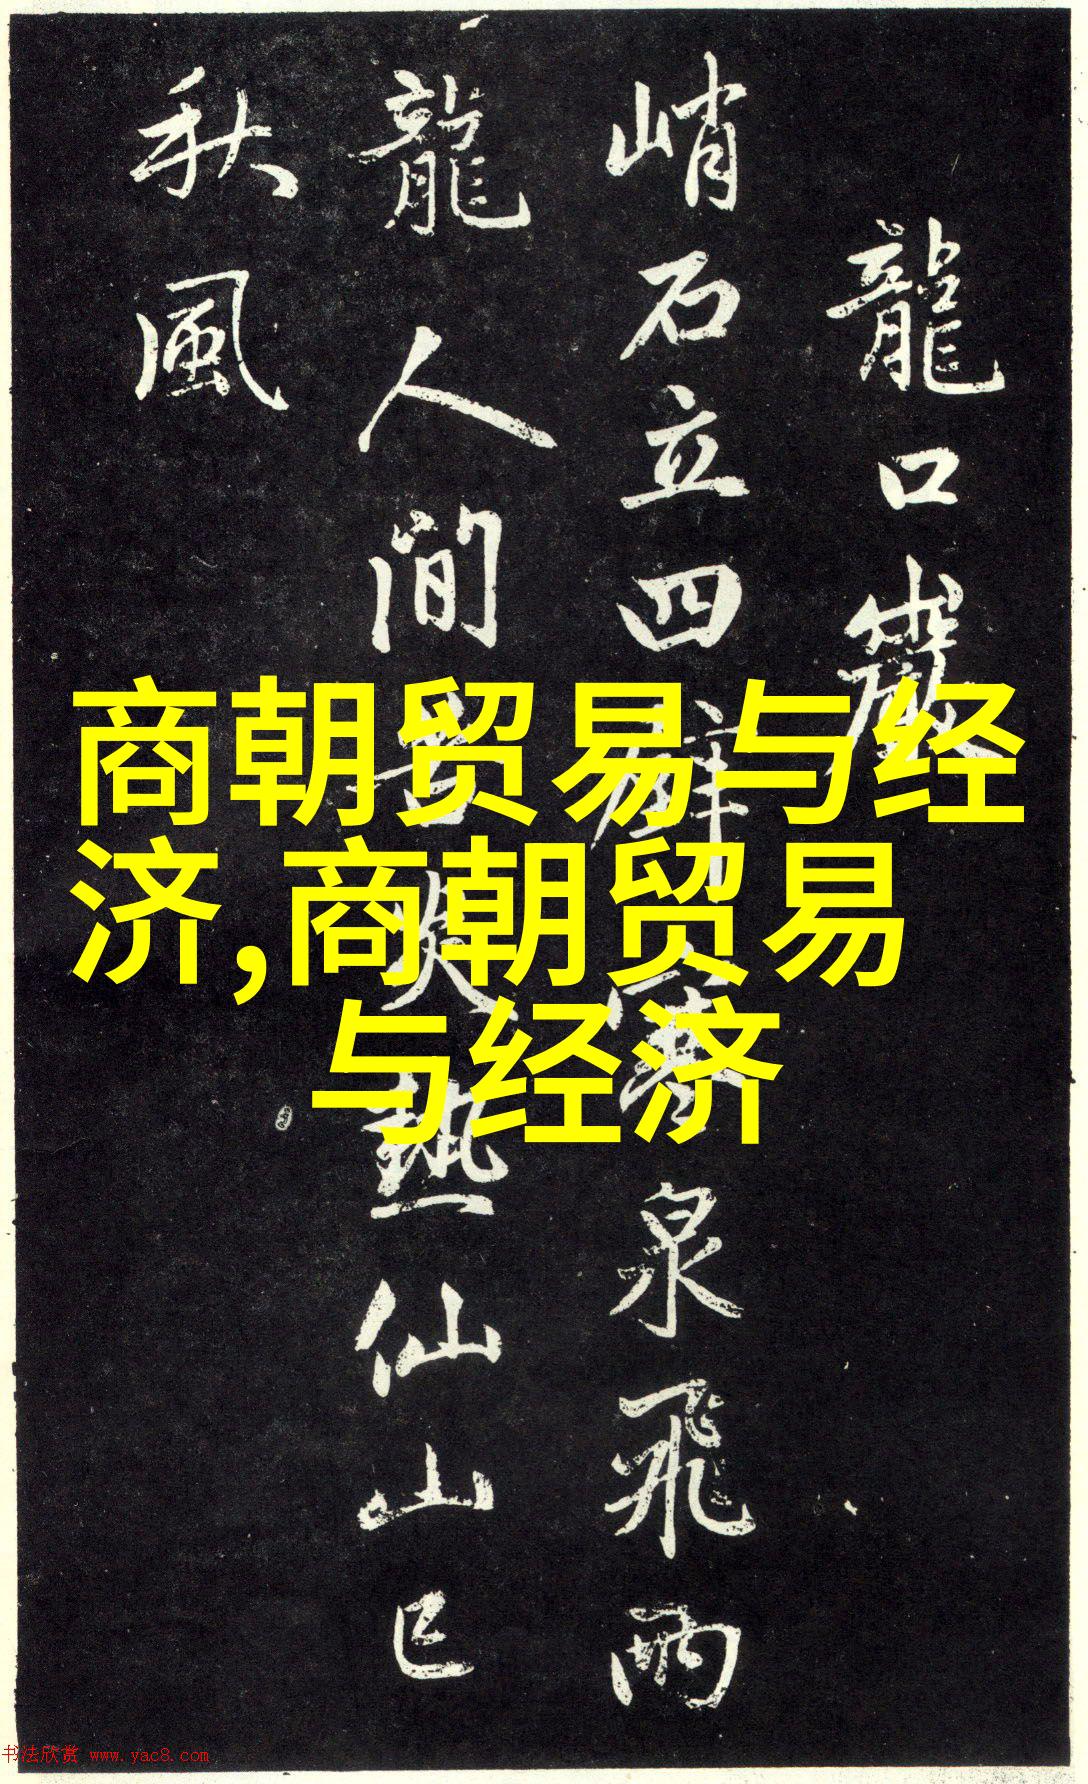 龍口巖
峭石立四壁寒泉飛兩
龍人間苦炎熱仙山已
秋風
商朝贸易与经
济,商朝贸易
与经济
书法欣赏 www.yac8.com